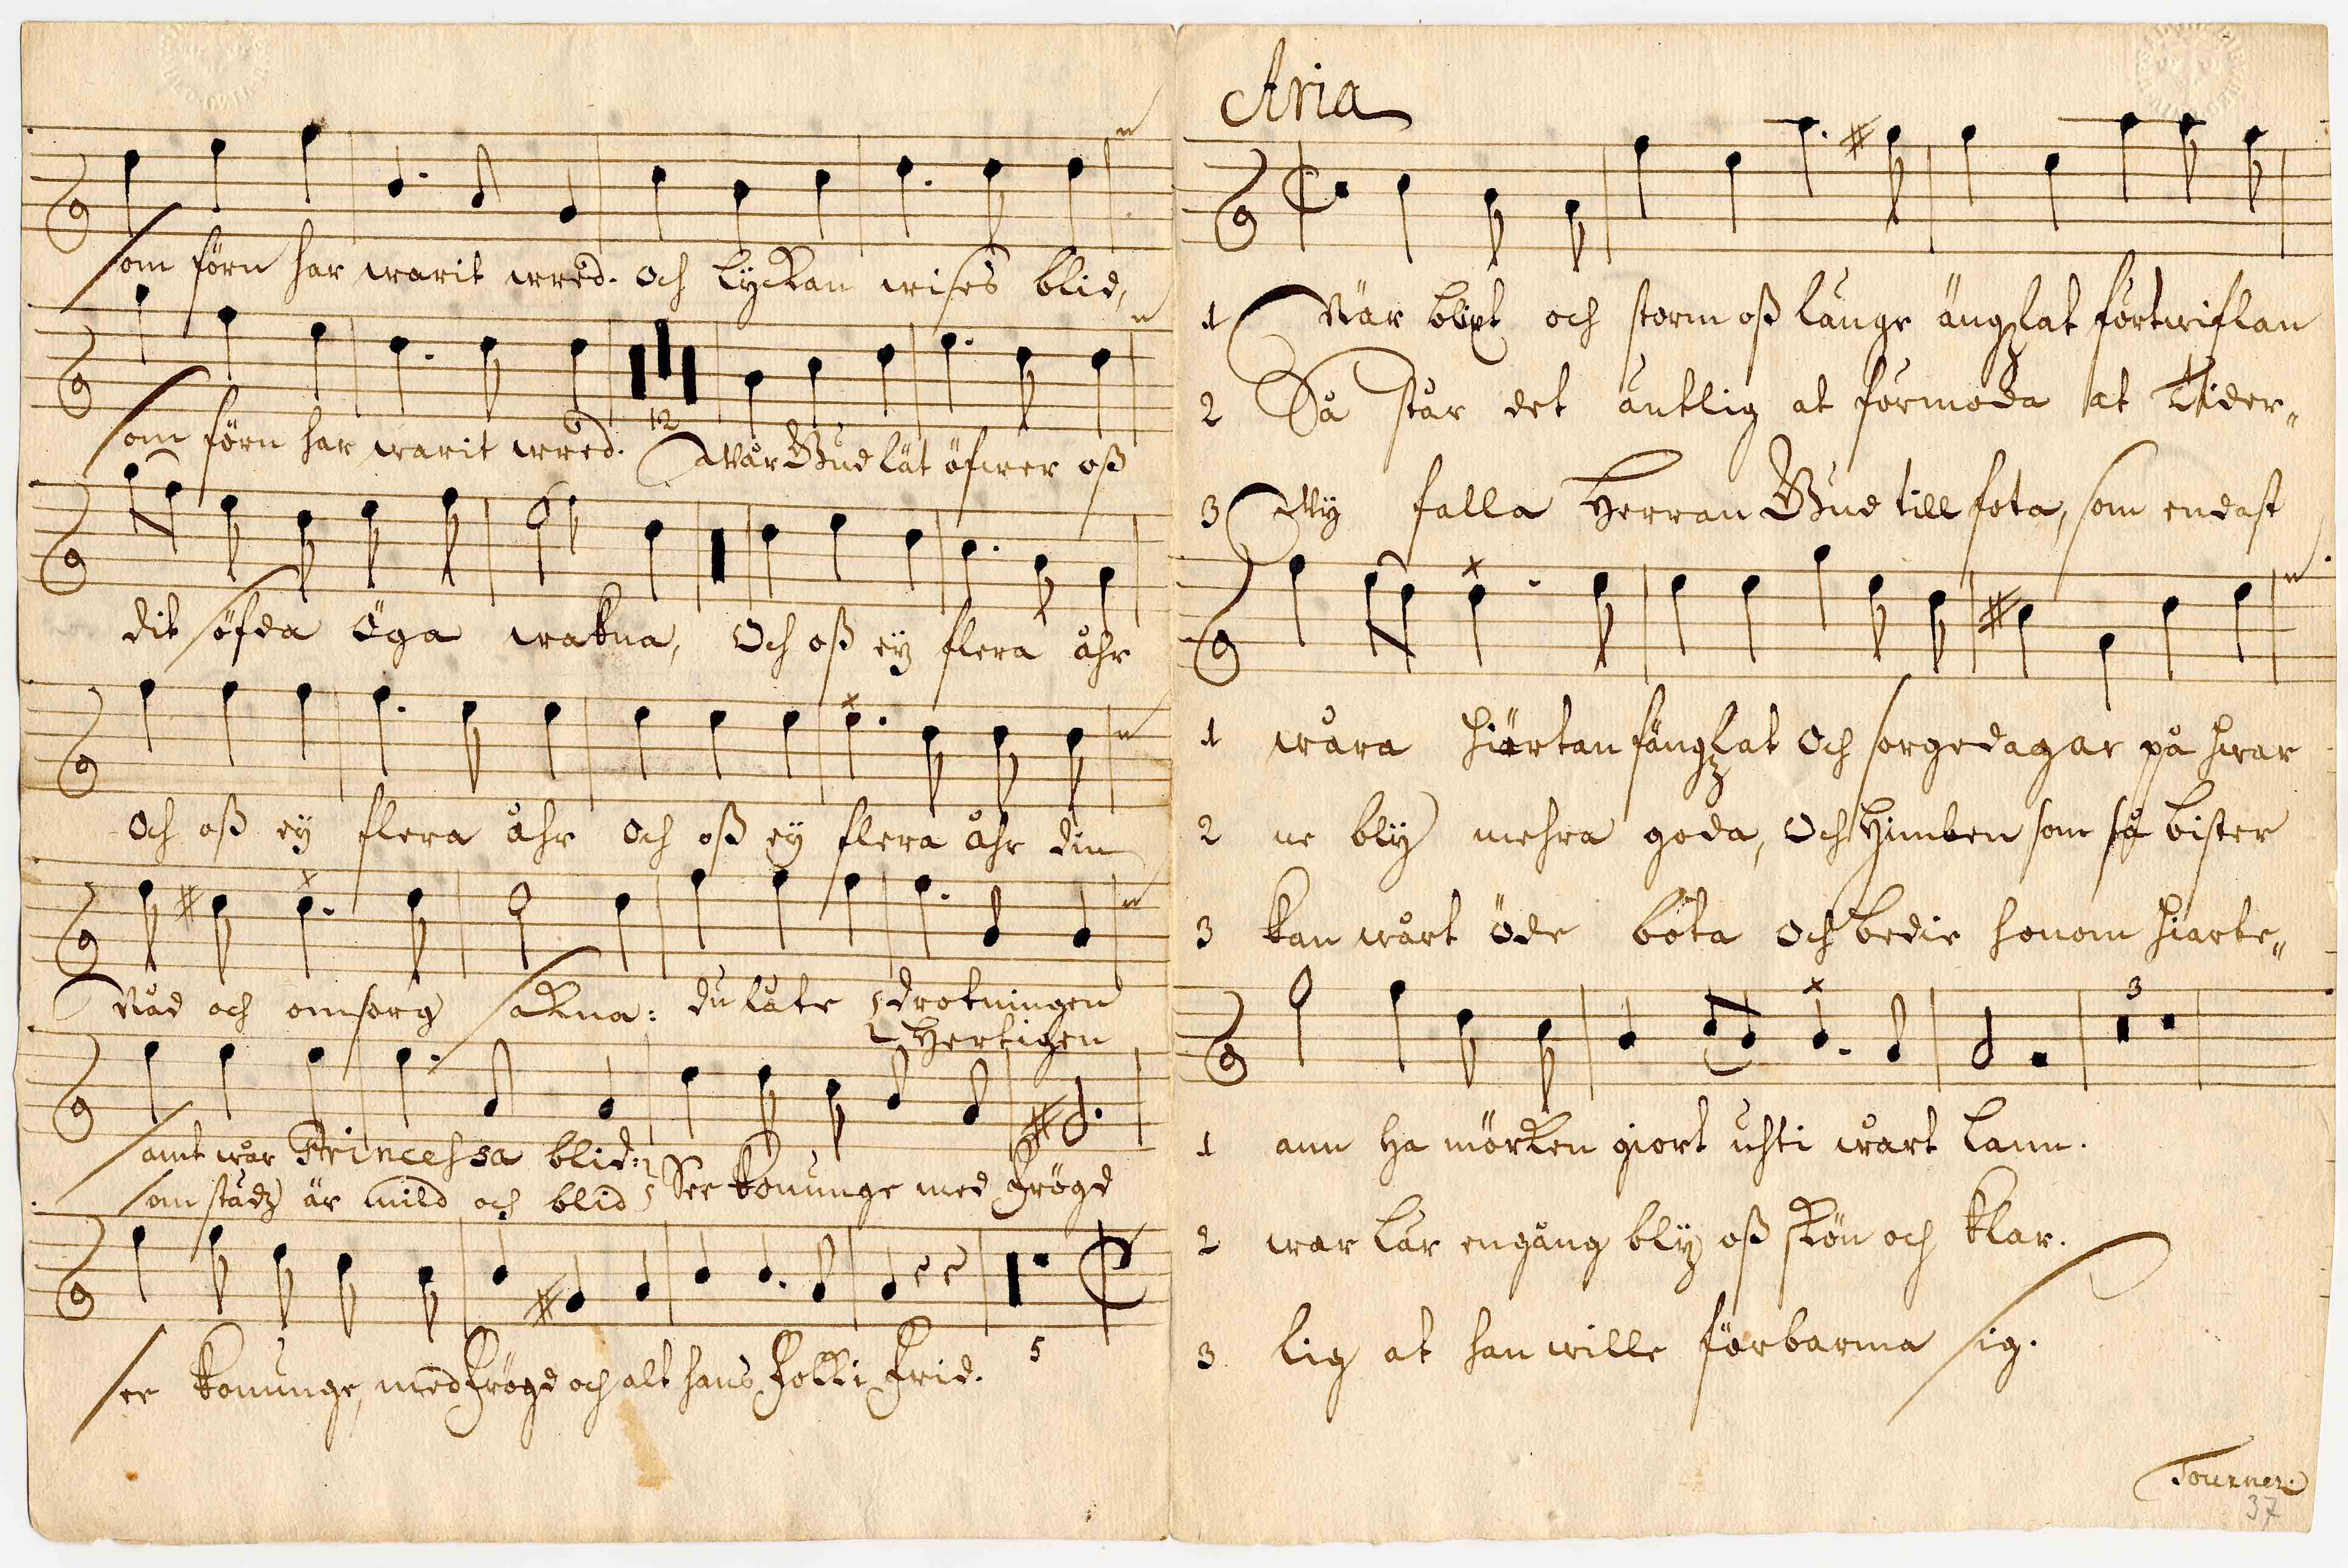 som förn har warit wred. och lyckan wises blid,
som förn har warit wred. 12 wår Gud låt öfwer oß
dit söfda öga wakna, och oß ey flera åhr
och oß ey flera åhr och oß ey flera åhr din
Nåd och omsorg sakna: du låte drotningen
Hertigen
samt wår Princessa blid:
som städz är mild och blid See konunge med frögd
see konunge, med frögd och alt hans folk i frid. 5
Aria
1 När blixt och storm oß länge ängzlat förtwiflan
2 Så står det äntlig at förmoda at Tider„
3 Wy falla Herran Gud till fota, som endast
1 wåra hiärtan fängzlat och sorgedagar på hwar
2 ne bly mehra goda, och Himlen som så bister
3 kan wårt öde böta och bedie honom hiärte„
3
1 ann ha mörker giort uhti wårt land.
2 war lär engång bly oß skön och klar.
3 lig at han wille förbarma sig.
Tournez
37